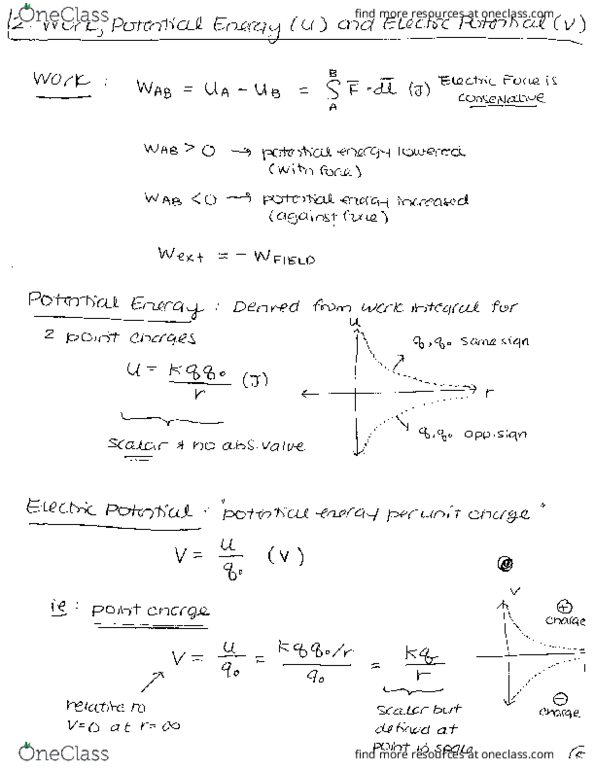 OneClass
find more resources at oneclass.com
find more resources at oneclass.com
12. Work, Potential Energy (U) and Electric Potential (V)
Work : W_AB = U_A - U_B = ∫_A^B F̄ · dl̄ (J) Electric Force is conservative
W_AB > 0 → potential energy lowered
(with force)
W_AB < 0 → potential energy increased
(against force)
W_ext = - W_FIELD
Potential Energy : Derived from work integral for
2 point charges
U = kqq₀/r (J)
scalar * no abs. value
U
q, q₀ same sign
r
q, q₀ opp. sign
Electric Potential : "potential energy per unit charge"
V = U/q₀ (V)
ie : point charge
V = U/q₀ = kqq₀/r / q₀ = kq/r
relative to
V=0 at r=∞
scalar but
defined at
point in space
V
+
charge
-
charge
OneClass
find more resources at oneclass.com
find more resources at oneclass.com